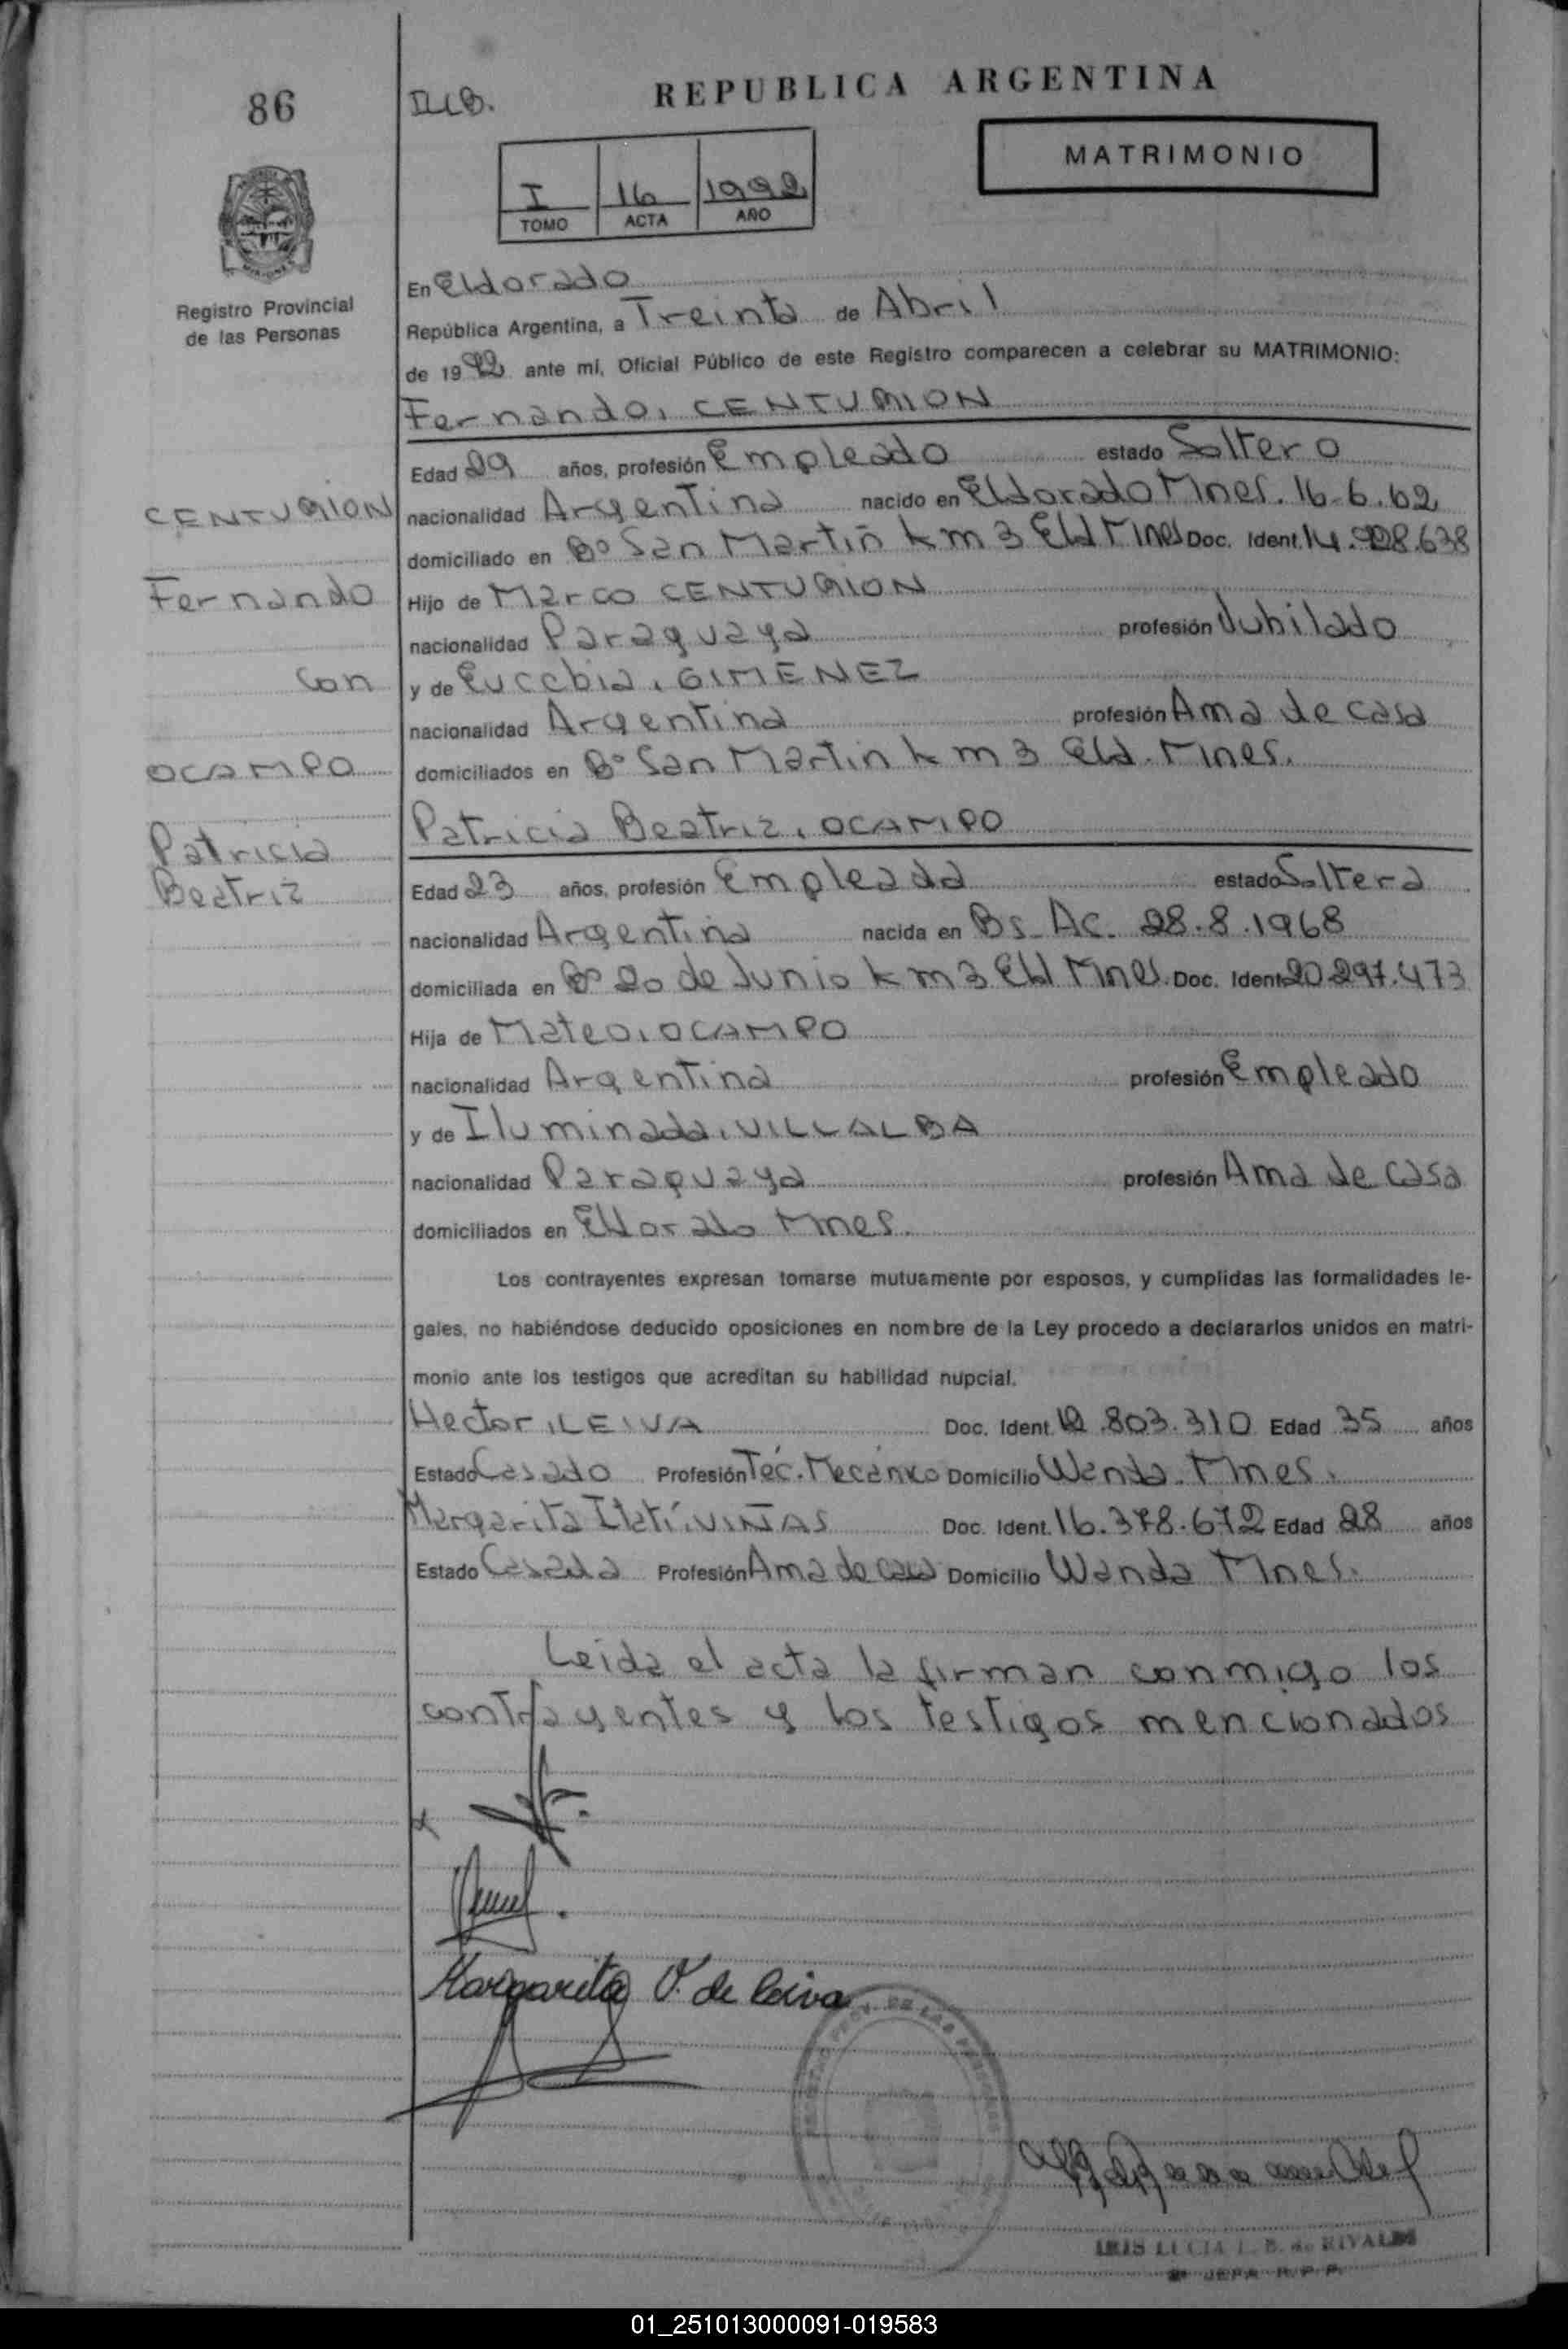 86
REPUBLICA ARGENTINA
MATRIMONIO
I 16 1992
TOMO ACTA AÑO
Registro Provincial
de las Personas
En Eldorado
República Argentina, a Treinta de Abril
de 1992 ante mí, Oficial Público de este Registro comparecen a celebrar su MATRIMONIO:
Fernando, CENTURION
Edad 29 años, profesión Empleado estado Soltero
CENTURION
nacionalidad Argentina nacido en Eldorado Mnes. 16-6.62
domiciliado en Bº San Martin km 3 Eld Mnes Doc. Ident. 14.928.638
Fernando
Hijo de Marco CENTURION
nacionalidad Paraguaya profesión Jubilado
con
y de Eucebia, GIMENEZ
nacionalidad Argentina profesión Ama de casa
OCAMPO
domiciliados en Bº San Martin km 3 Eld. Mnes.
Patricia Beatriz, OCAMPO
Patricia
Beatriz
Edad 23 años, profesión Empleada estado Soltera
nacionalidad Argentina nacida en Bs. As. 28.8.1968
domiciliada en Bº 20 de Junio km 3 Eld Mnes. Doc. Ident 20.297.473
Hija de Mateo, OCAMPO
nacionalidad Argentina profesión Empleado
y de Iluminada, VILLALBA
nacionalidad Paraguaya profesión Ama de Casa
domiciliados en Eldorado Mnes.
Los contrayentes expresan tomarse mutuamente por esposos, y cumplidas las formalidades le-
gales, no habiéndose deducido oposiciones en nombre de la Ley procedo a declararlos unidos en matri-
monio ante los testigos que acreditan su habilidad nupcial.
Hector, LEIVA Doc. Ident. 12.803.310 Edad 35 años
Estado Casado Profesión Téc. Mecánico Domicilio Wanda. Mnes.
Margarita Itatí, VIÑAS Doc. Ident. 16.378.672 Edad 28 años
Estado Casada Profesión Ama de casa Domicilio Wanda Mnes.
Leida el acta la firman conmigo los
contrayentes y los testigos mencionados
Margarita V. de Leiva
IRIS LUCIA L. B. de RIVALDI
JEFA R.P.P.
01_251013000091-019583